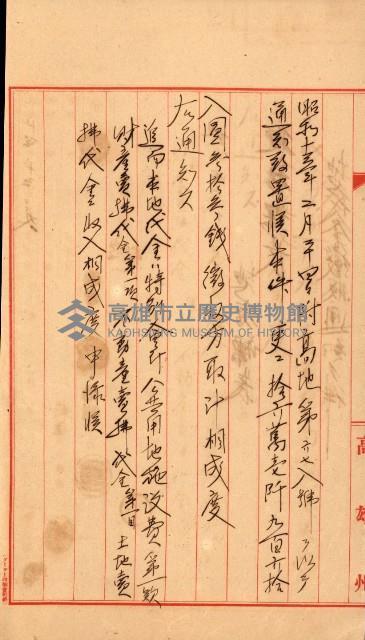 昭和十三年二月二十四日附高地第六七八號ヲ以テ
通知致置候本件更ニ拾六萬壱阡九百六拾
八圓参拾参錢徵收方取計相成度
右通知ス
追而本地代金ハ特別會計 用地施設費第一款
財產賣拂代金第一項不動產賣拂代金第一目土地賣
拂代金收入相成度申添候
高雄州
高雄市立歷史博物館
KAOHSIUNG MUSEUM OF HISTORY